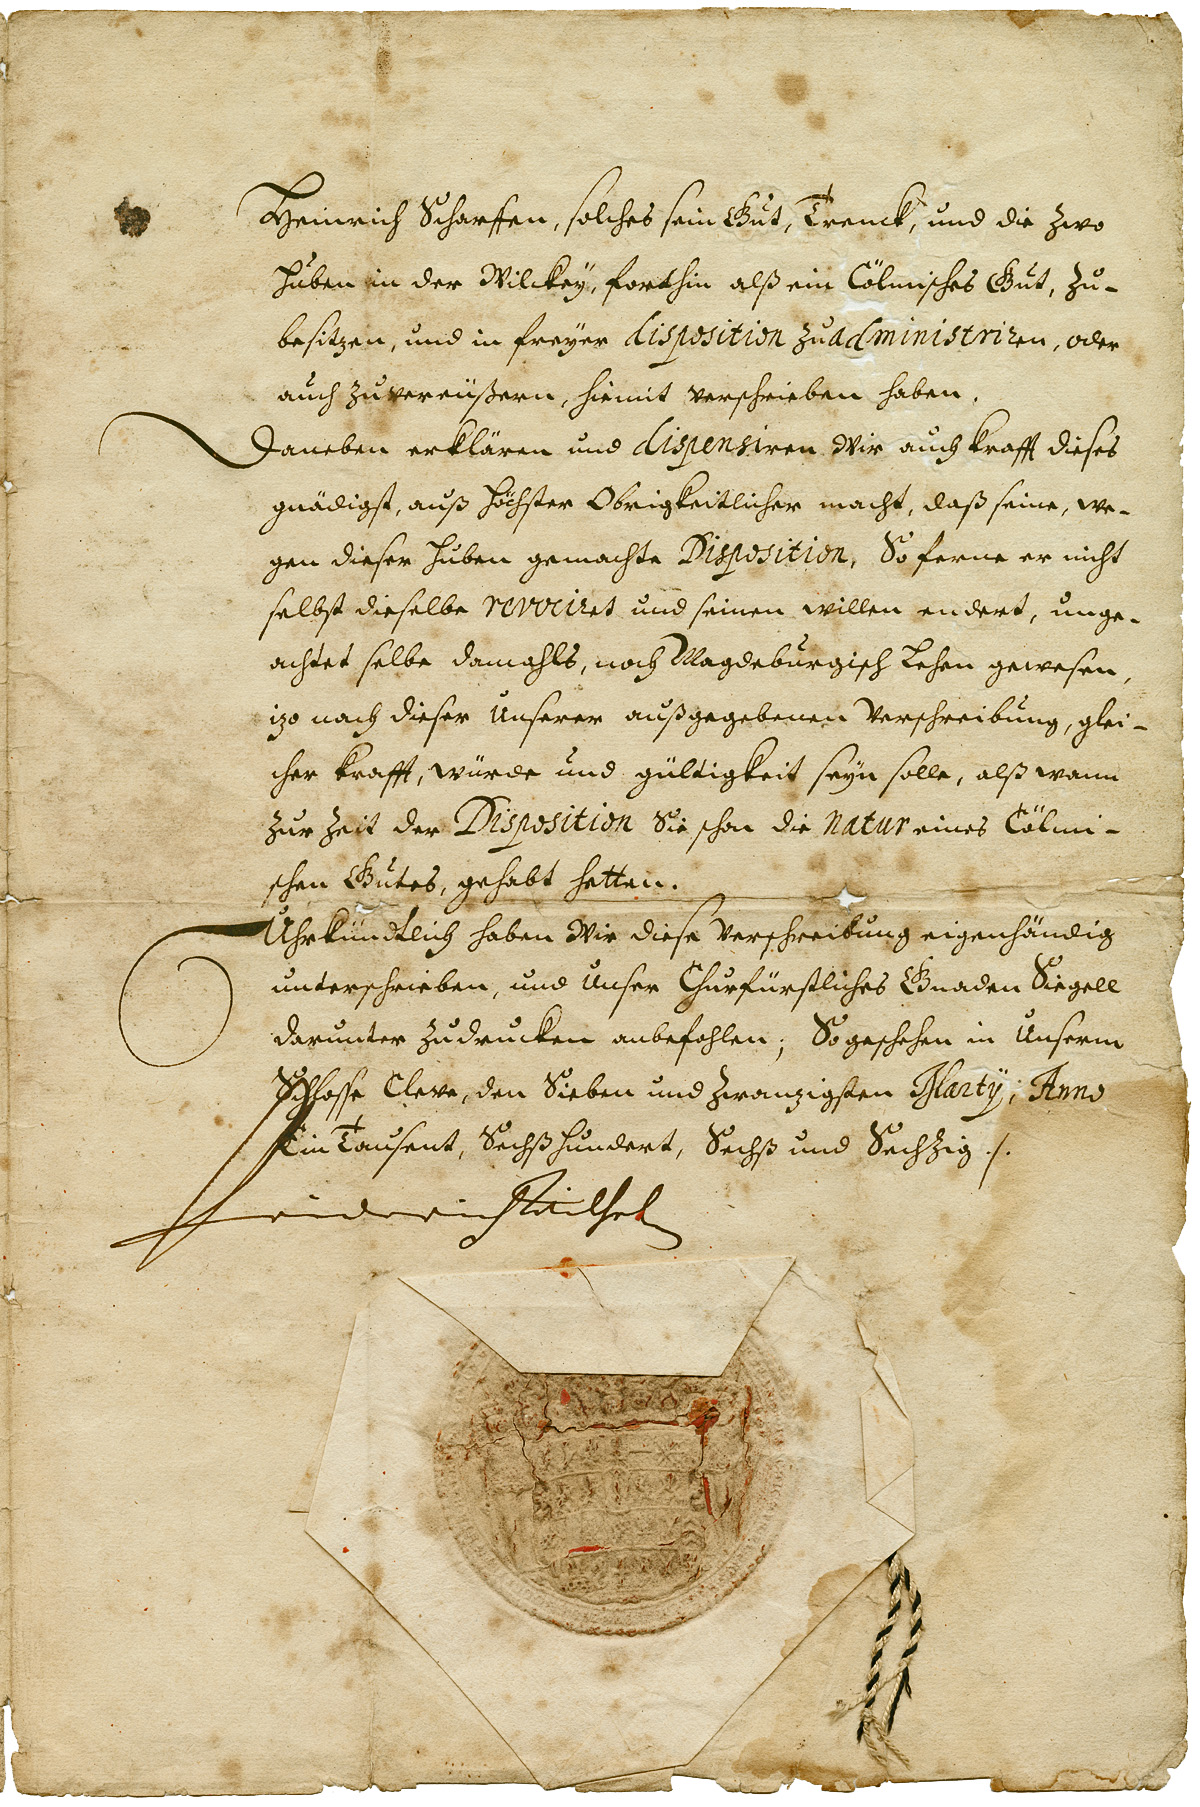 Heinrich Scharffen, solches sein Gut, Trenck, und die zwo
Huben in der Wilckey, forthin alß ein Cölmisches Gut, zu-
besitzen, und in freyer disposition zu administriren, oder
auch zuvereüßern, hiemit verschrieben haben.
Daneben erklären und dispensiren Wir auch krafft dieses
gnädigst, auß höchster Obrigkeitlicher macht, daß seine, we-
gen dieser Huben gemachte Disposition, So ferne er nicht
selbst dieselbe revociret und seinen willen endert, unge-
achtet selbe damahls, noch Magdeburgisch Lehen gewesen,
izo nach dieser Unserer außgegebenen Verschreibung, glei-
cher krafft, würde und gültigkeit seyn solle, alß wann
zur Zeit der Disposition Sie schon die natur eines Cölmi-
schen Gutes, gehabt hetten.
Uhrkündtlich haben Wir diese Verschreibung eigenhändig
unterschrieben, und Unser Churfürstliches Gnaden Siegell
darunter zudrucken anbefohlen; So geschehen in Unserm
Schlosse Cleve, den Sieben und zwanzigsten Martÿ; Anno
Ein Tausent, Sechß hundert, Sechß und Sechzig ./.
Friderich Wilhelm